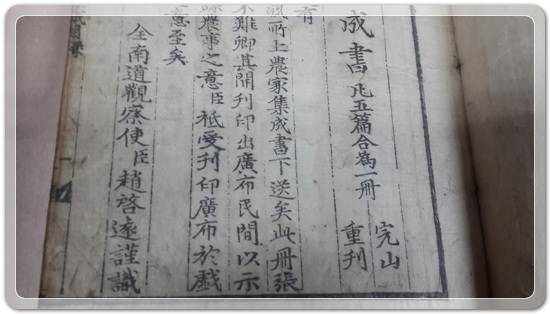 成書 凡五篇合為一冊 完山
重刊
有
所上農家集成書下送矣此冊張
不難卿其開刊印出廣布民間以示
農事之意臣祗受刊印廣布於戲
意至矣
全南道觀察使臣趙啓遠謹識